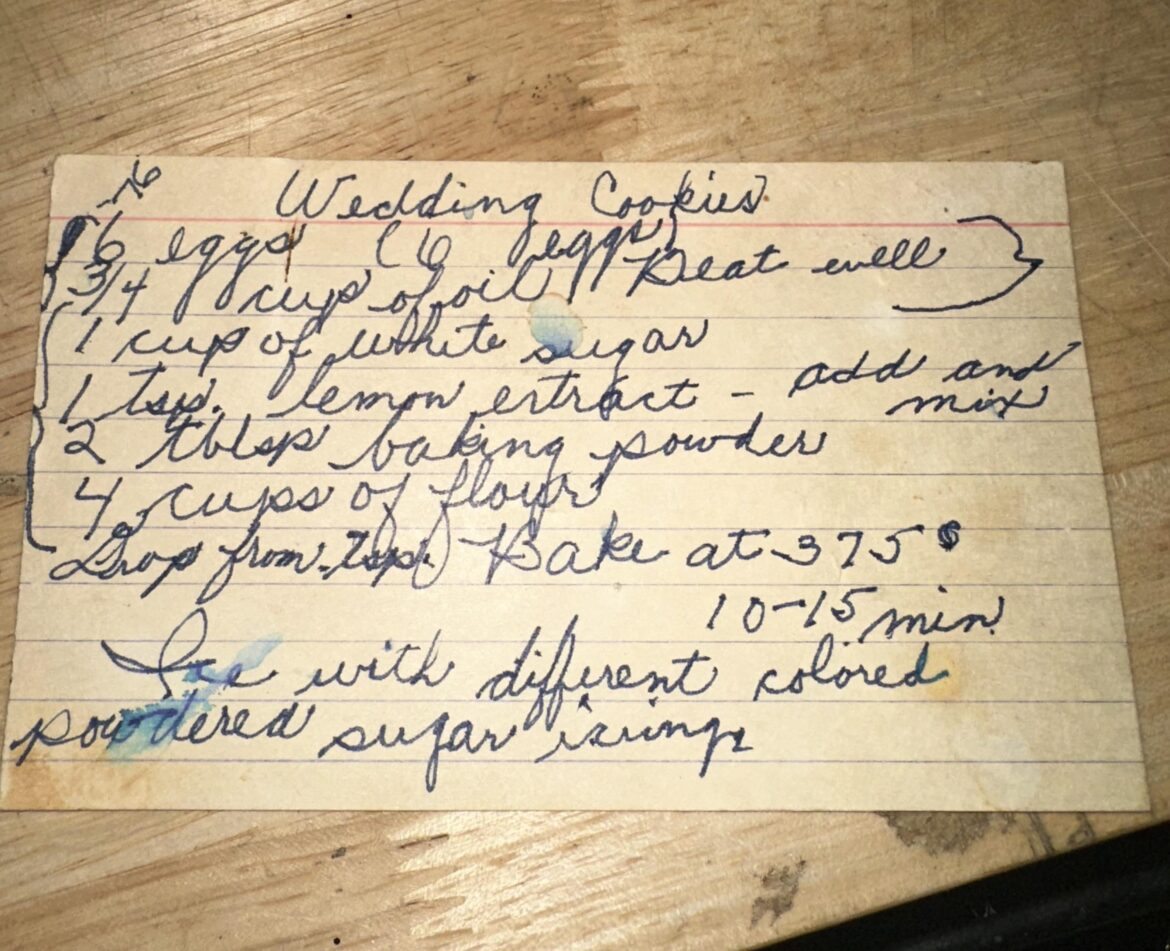 Wedding Cookies
6 eggs (6 eggs)
3/4 cup of oil Beat well
1 cup of white sugar
1 tsp. lemon extract - add and mix
2 tblsp baking powder
4 cups of flour
Drop from tsp. Bake at 375°
10-15 min.
Ice with different colored
powdered sugar icing